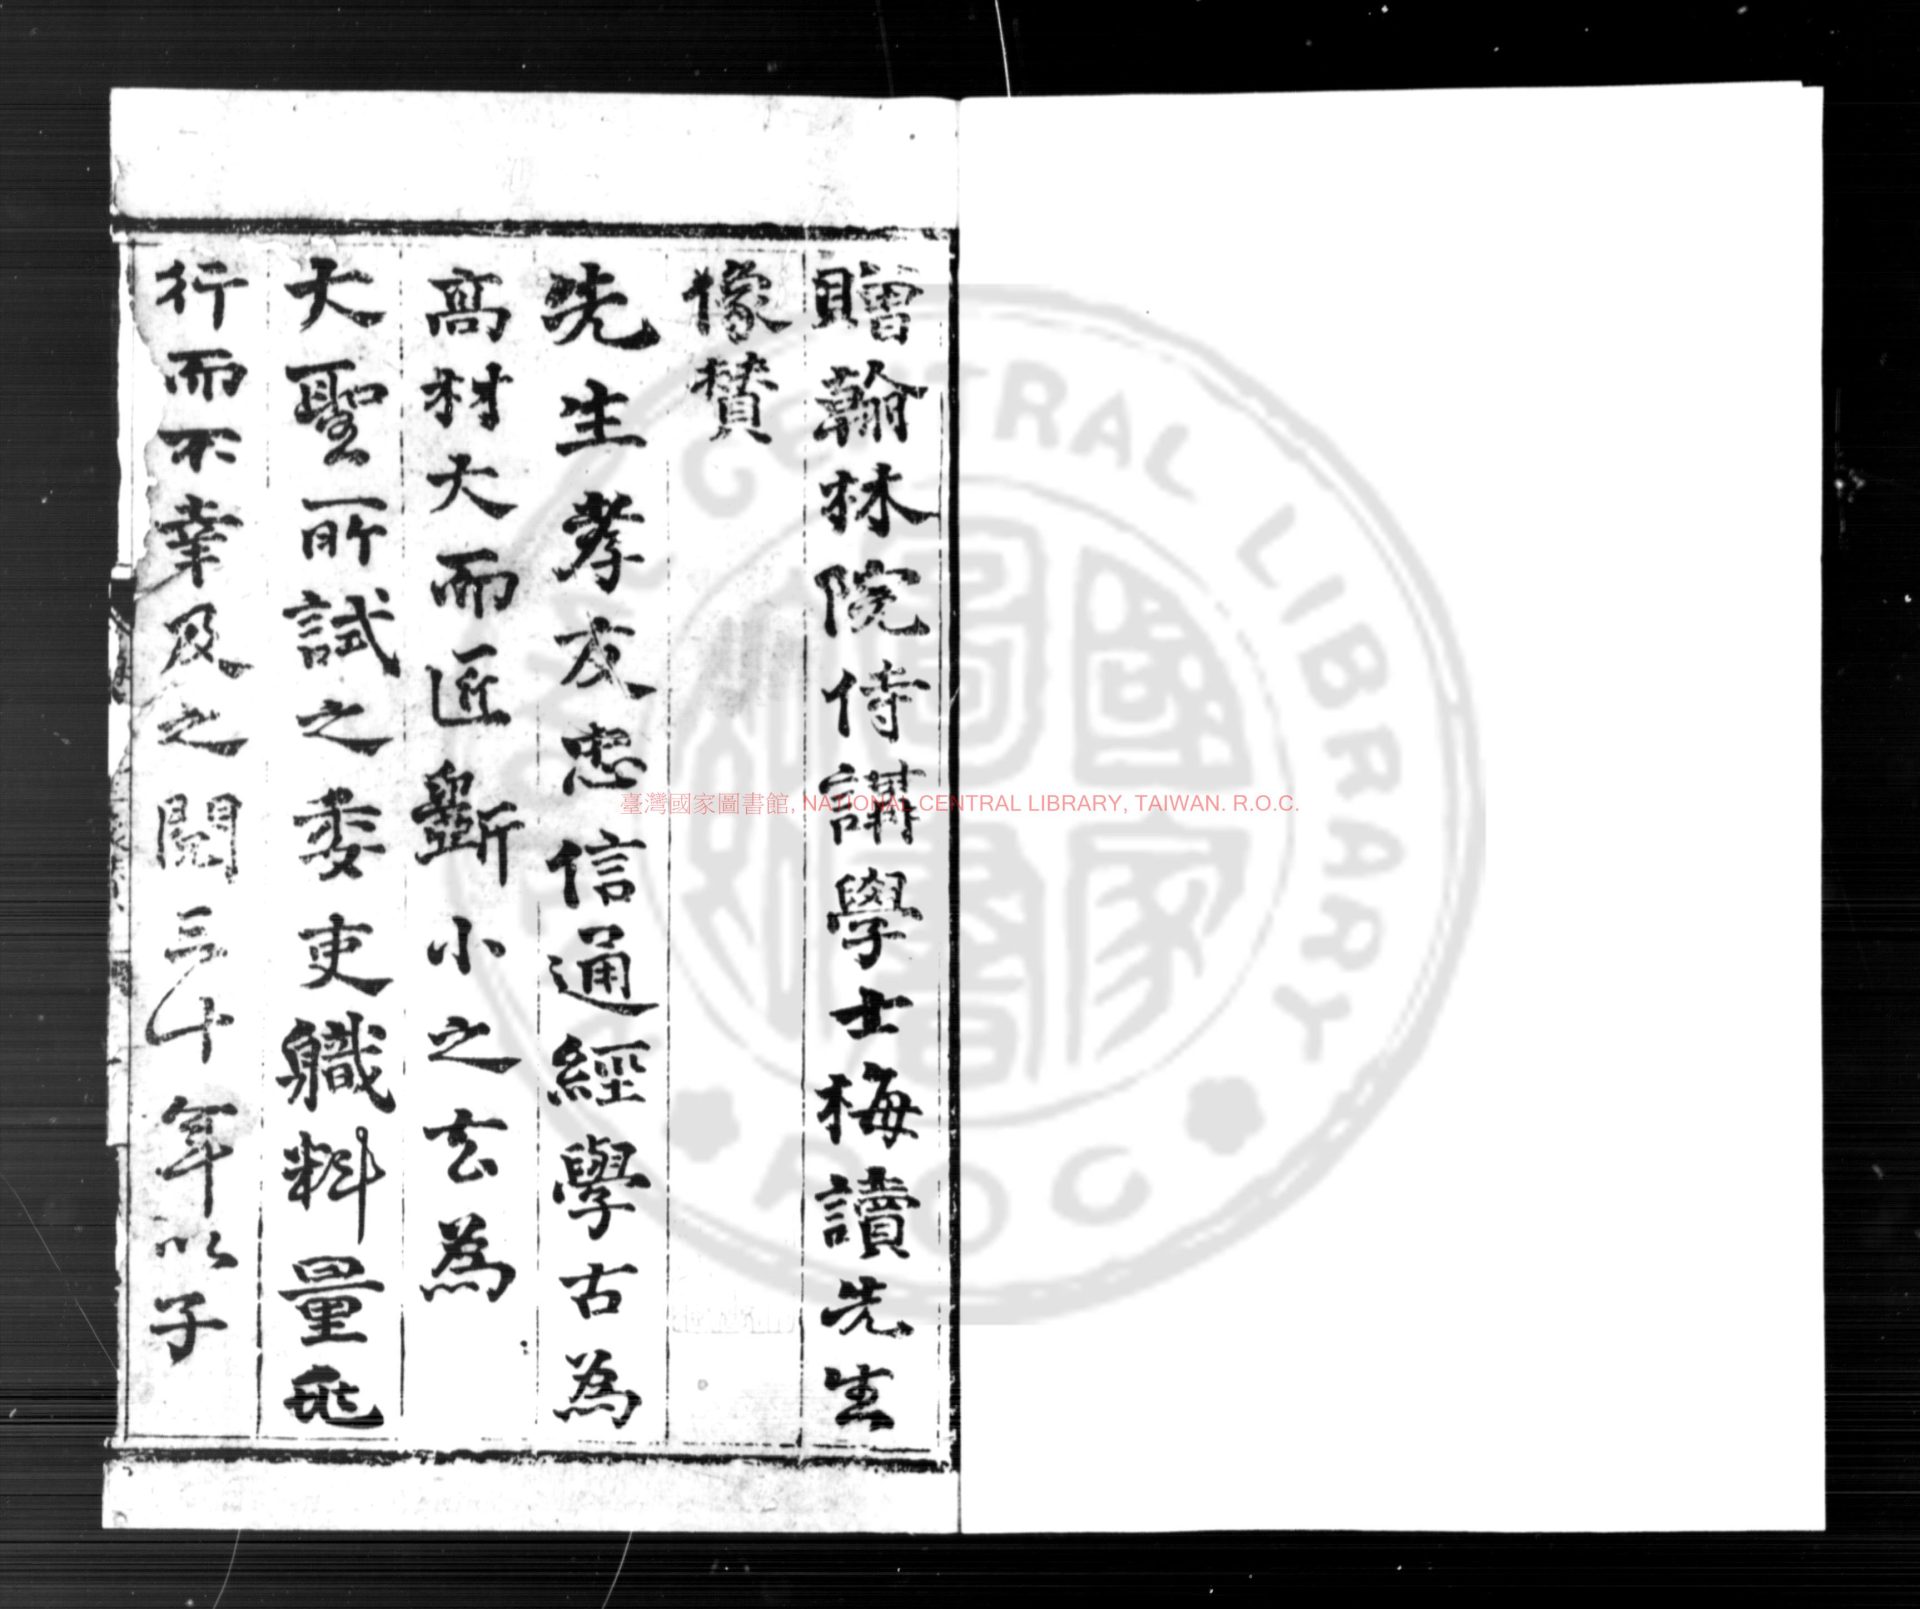 贈翰林院侍講學士梅讀先生
像賛
先生孝友忠信通經學古為
高材大而匠斲小之玄為
大聖所試之委吏軄料量
行而不幸及之閱三十年以子
臺灣國家圖書館, NATIONAL CENTRAL LIBRARY, TAIWAN. R.O.C.
NATIONAL CENTRAL LIBRARY R O C
國家圖書館